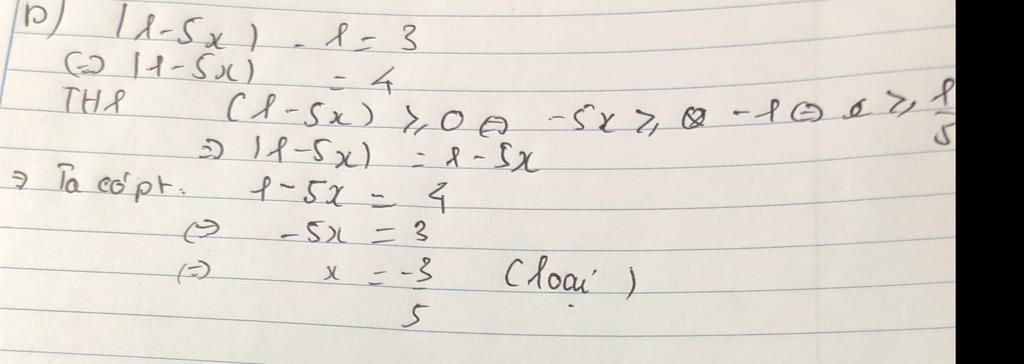 b) |1-5x| - 1 = 3
(=) |1-5x| = 4
TH1 (1-5x) ≥ 0 (=) -5x ≥ -1 (=) x ≥ 1/5
=) |1-5x| = 1-5x
=) Ta có pt. 1-5x = 4
(=) -5x = 3
(=) x = -3/5 (loại)